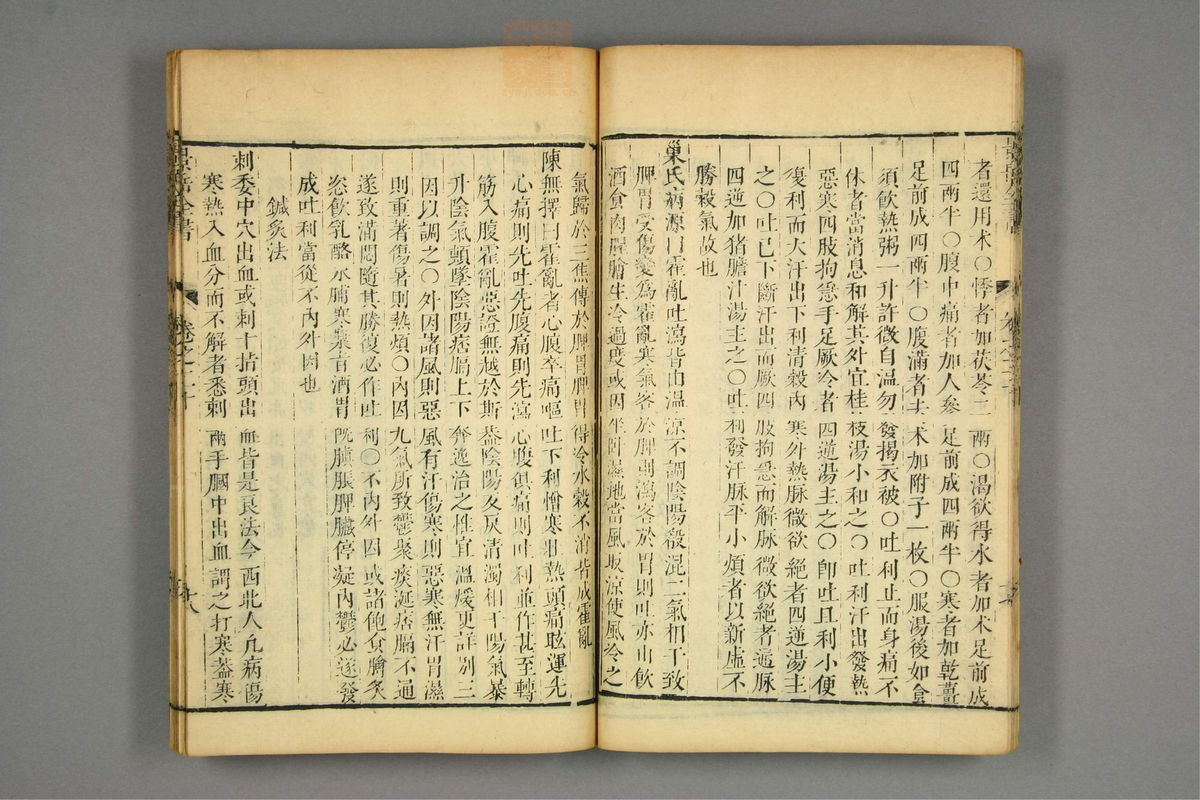 者還用术○悸者加茯苓二兩○渴欲得水者加术足前成
四兩半○腹中痛者加人參足前成四兩半○寒者加乾薑
足前成四兩半○腹滿者去术加附子一枚○服湯後如食
頃飲熱粥一升許微自溫勿發揭衣被○吐利止而身痛不
休者當消息和解其外宜桂枝湯小和之○吐利汗出發熱
惡寒四肢拘急手足厥冷者四逆湯主之○卽吐且利小便
復利而大汗出下利清穀內寒外熱脉微欲絕者四逆湯主
之○吐已下斷汗出而厥四肢拘急而解脉微欲絕者通脉
四逆加猪膽汁湯主之○吐利發汗脉平小煩者以新虛不
勝穀氣故也
巢氏病源曰霍亂吐瀉皆由溫涼不調陰陽殽混二氣相干致
脾胃受傷變爲霍亂寒氣客於脾則瀉客於胃則吐亦由飲
酒食肉腥膾生冷過度或因坐卧濕地當風取涼使風冷之
氣歸於三焦傳於脾胃脾胃得冷水穀不消皆成霍亂
陳無擇曰霍亂者心腹卒痛嘔吐下利憎寒壯熱頭痛眩運先
心痛則先吐先腹痛則先瀉心腹俱痛則吐利並作甚至轉
筋入腹霍亂惡證無越於斯葢陰陽反戾清濁相干陽氣暴
升陰氣頓墜陰陽痞膈上下奔逸治之惟宜溫煖更詳別三
因以調之○外因諸風則惡風有汗傷寒則惡寒無汗冒濕
則重著傷暑則熱煩○內因九氣所致鬱聚痰涎痞膈不通
遂致滿悶隨其勝復必作吐利○不內外因或諸飽食膾炙
恣飲乳酪水脯寒漿旨酒胃旣䐜脹脾臟停凝內鬱必遂發
成吐利當從不內外因也
鍼灸法
刺委中穴出血或刺十指頭出血皆是良法今西北人凡病傷
寒熱入血分而不解者悉刺兩手膕中出血謂之打寒葢寒
景岳全書 卷之二十 十八